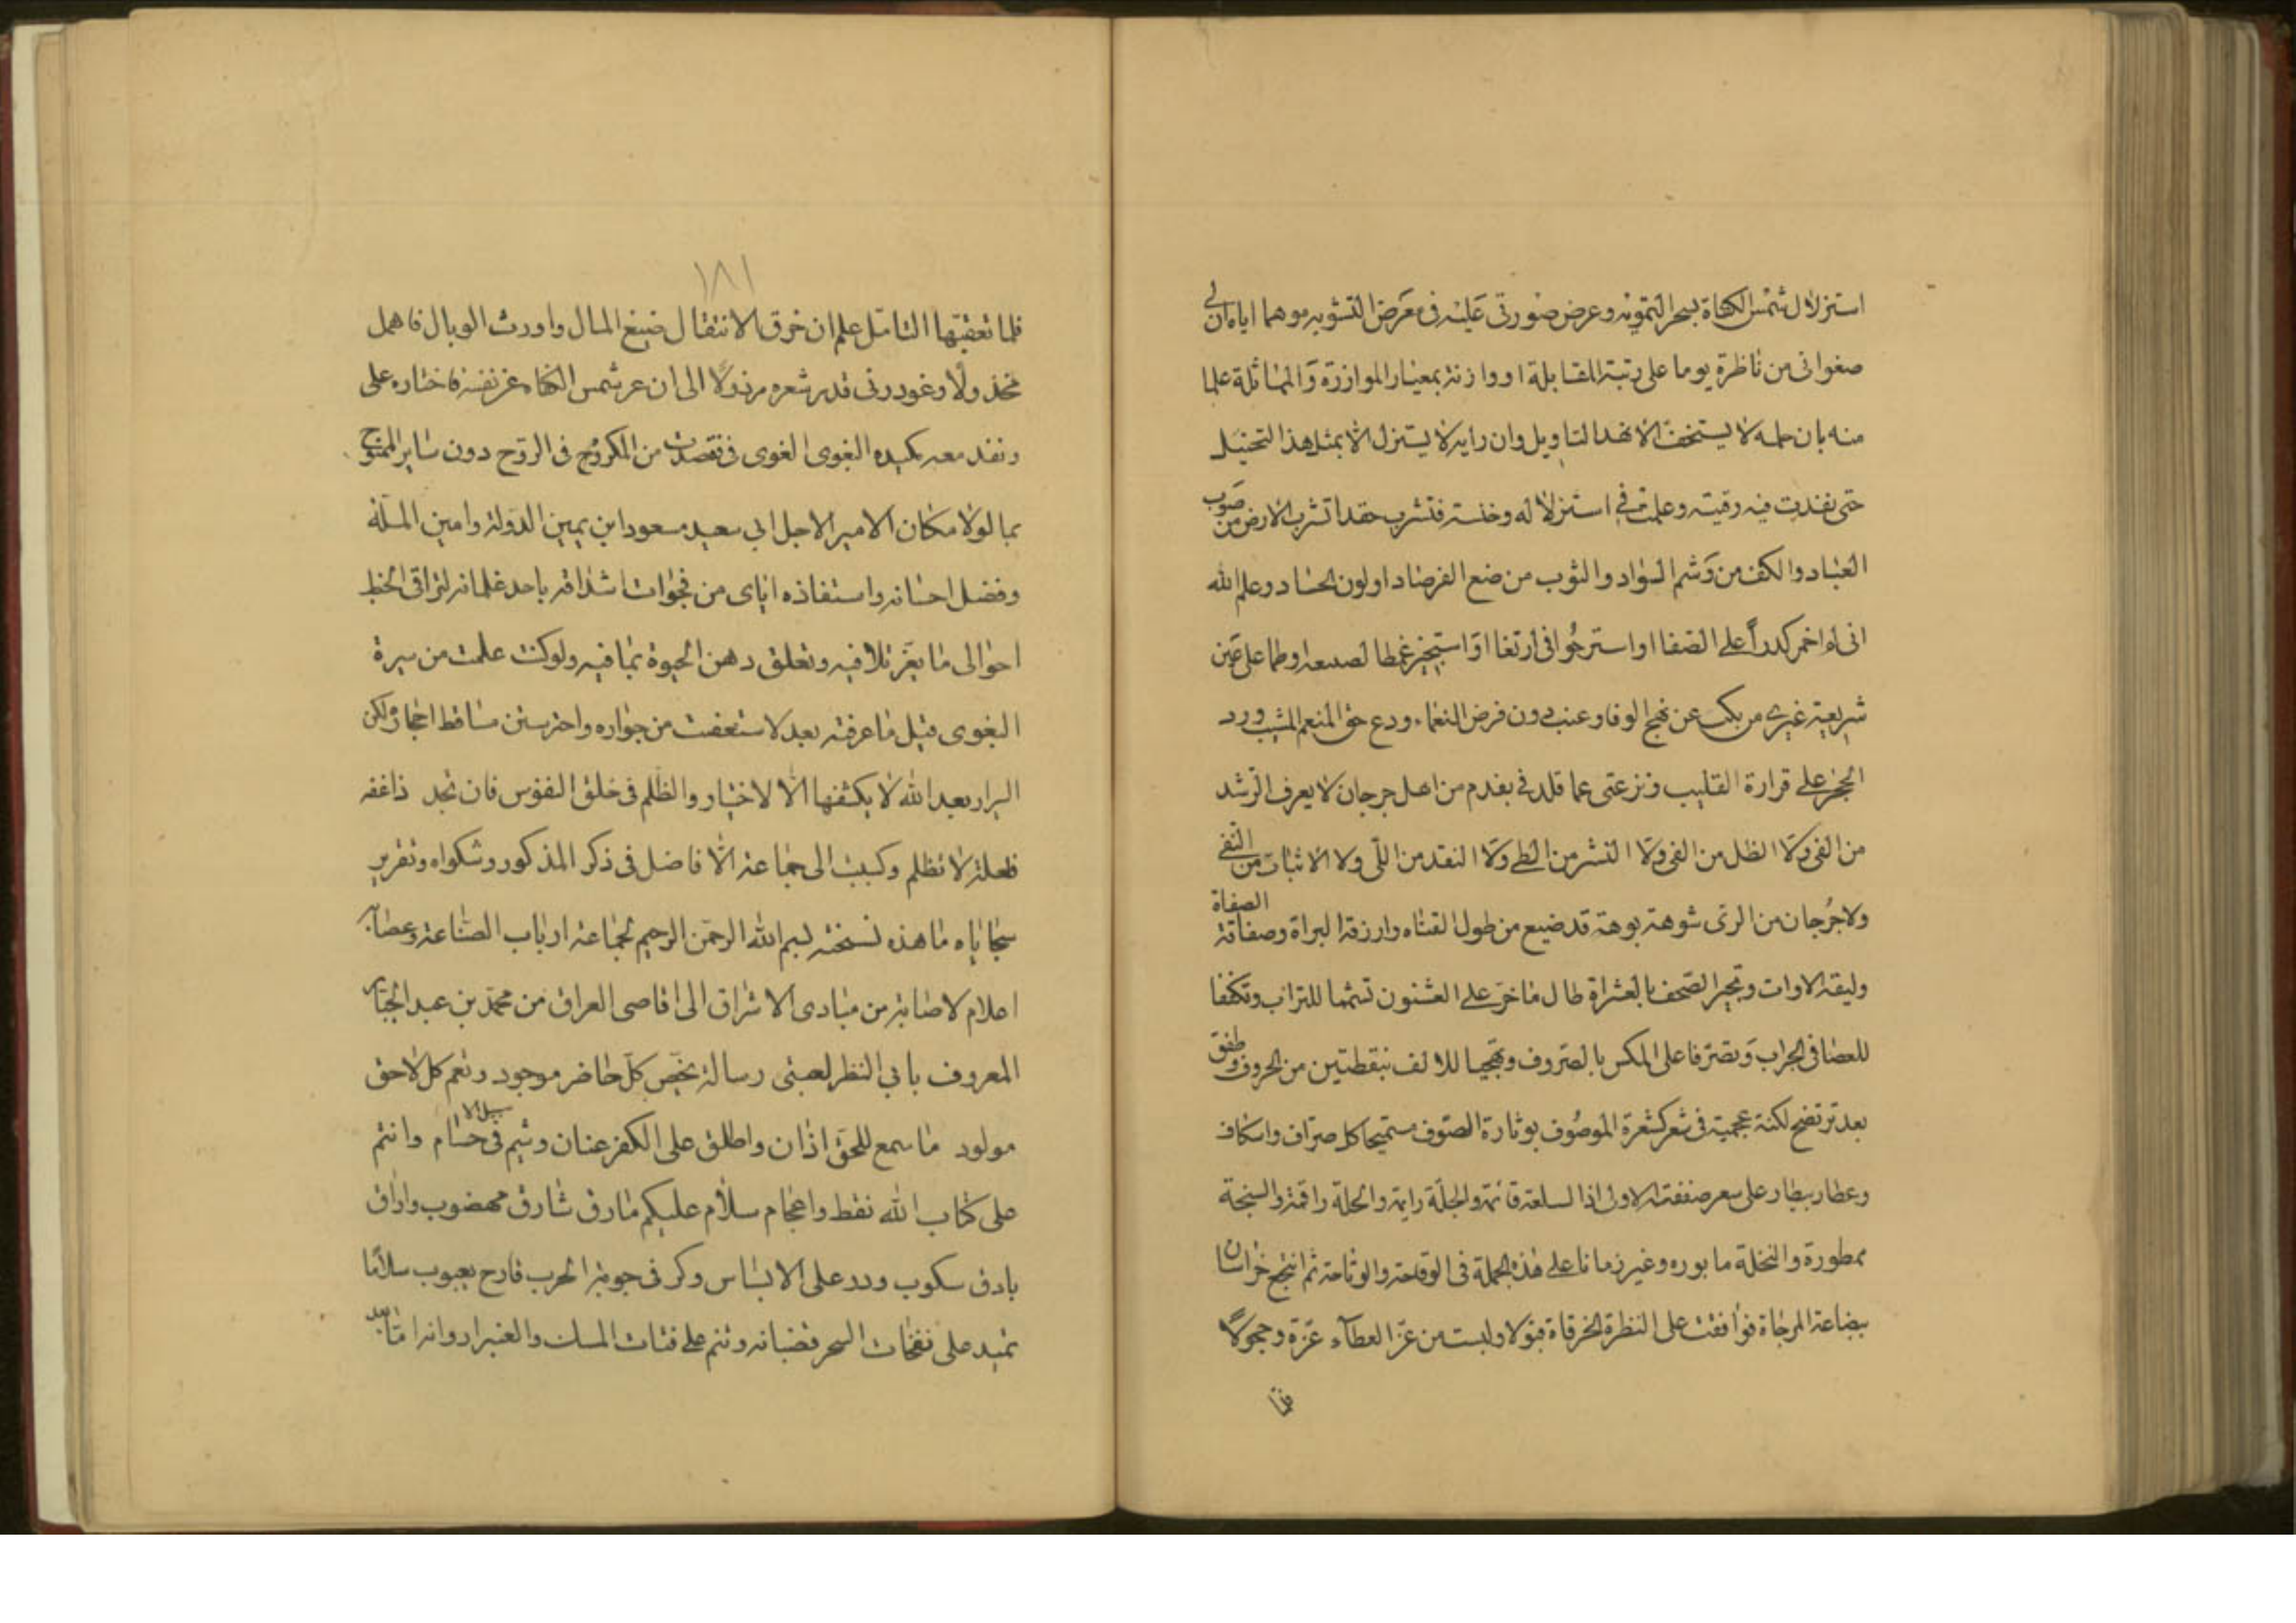 استزلال شمس الكفاة بسحر التمويه وعرض صورتى عليه فى معرض التشويه موهما اياه ان لى
صغوا الى من ناظرة يوما على رتبة المقابلة او وازنته بمعيار الموازرة والمماثلة علما
منه بان حلمه لا يستخف الا بهذا التاويل وان رايه لا يستزل الا بمثل هذا التخييل
حتى نفذت فيه رقيته وعملت فى استزلاله وخنسته فتشرب حقدا تشرب الارض من صوب
العباد والكف من وشم السواد والثوب من صبغ الفرصاد او لون الحساد وعلم الله
انى لم اخمر كدرا على الصفا او استر حُوا فى ارتغا او استجيز غمطا لصنيعه او طما على عين
شريعته غيرى من نكب عن نهج الوفا وعنب دون فرض النعماء ودع حق المنعم المثيب ورد
الحجر على قرارة القليب ونزعنى عما قلدنى بفدم من اهل جرجان لا يعرف الرشد
من الغى ولا الظل من الفى ولا النشر من الطى ولا النقد من اللى ولا الاثبات من النفى
ولا جُرجان من الرى شوهة بوهة قد ضيع من طول القناه وارزقه البراة وصفاقة الصفاة
وليقة الدوات وتحبر الصحف بالعشراة طال ما خر على العثنون تسمما للتراب وتكففا
للعصا فى الجراب وتصرفا على المكس بالصروف وتهجيا للالف بنقطتين من الحروف وطفق
بعد ترتضخ لكنة عجمية فى شعر كشعرة الموصوف بوثارة الصوف مستميحا كل صراف واسكاف
وعطار بيطار على سعر صفقته الاولى اذا السلعة قائمة والجلة راية والحلة راقمة والسبخة
ممطورة والنخلة مابوره وغبر زمانا على هذه الجملة فى الوقحة والوتاحة ثم انتجع خراسان
ببضاعة المزجاة فوافقت على النظرة الخرقاة قبولا ولبست من غز العطآء غرة وحجولا
فلما
١٨١
فلما تعقبها التامل علم ان خرق الانتقال ضيع المال واورث الوبال فاهمل
مخذولا وغودر فى قدر شعره مرذولا الى ان عر شمس الكفاه عز نفسه فاختاره على
ونفذ معه بكيده الغوى الغوى فى تقصدى من المكروُح فى الروح دون ساير الممنوح
بما لولا مكان الامير الاجل ابى سعيد مسعود ابن يمين الدولة وامين الملة
وفضل احسانه واستنفاذه اياى من فجوات اشداقه باحد غلمانه لتراقى الخطب
احوالى ما يعز تلافيه وتعلق دهن الحيوة بما فيه ولو كنت علمت من سيرة
البغوى قبل ما عرفته بعد لاستعفت من جواره واحترست من مساقط احجاره ولكن
البرار بعبد الله لا يكشفها الا الاختيار والظلم فى خلق النفوس فان تجد ذا عفه
فلعلة لا تظلم وكتبت الى جماعة الافاضل فى ذكر المذكور وشكواه وتقرير
سجاياه ما هذه نسخته بسم الله الرحمن الرحيم لجماعة ارباب الصناعة وعصابه
اعلام الاصابة من مبادى الاشراق الى اقاصى العراق من محمد بن عبد الجبار
المعروف بابى النظر لعتبى رسالة تخص كل حاضر موجود وتعم كل لاحق
مولود ما سمع للحق اذان واطلق على الكفر عنان وشيم فى سبيل الله حسام وانتم
على كتاب الله نقط واعجام سلام عليكم ما رق شارق مهضوب واراق
بادق سكوب ودر على الابساس وكر فى حومة الحرب قارح يعبوب سلاما
تميد على نفحات السحر قضبانه وتنم على فتات المسك والعنبر اردوانه اما بعد